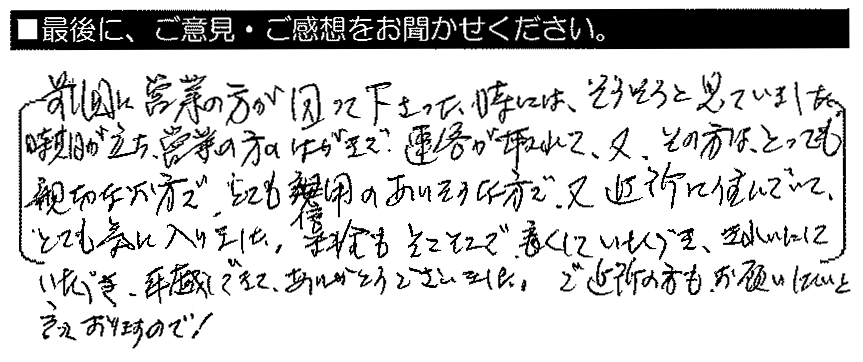 ■最後に、ご意見・ご感想をお聞かせください。
前回に営業の方が回って下さった時には、そろそろと思っていました
時期が立ち、営業の方のはがきで連絡が取れて、又、その方は、とっても
親切な方で、とても信用のありそうな方で、又近所に住んでいて、
とても気に入りました。料金もそこそこで、良くしていただき、きれいにして
いただき、年越しできて、ありがとうございました。ご近所の方も、お願いしたいと
言っておりますので！